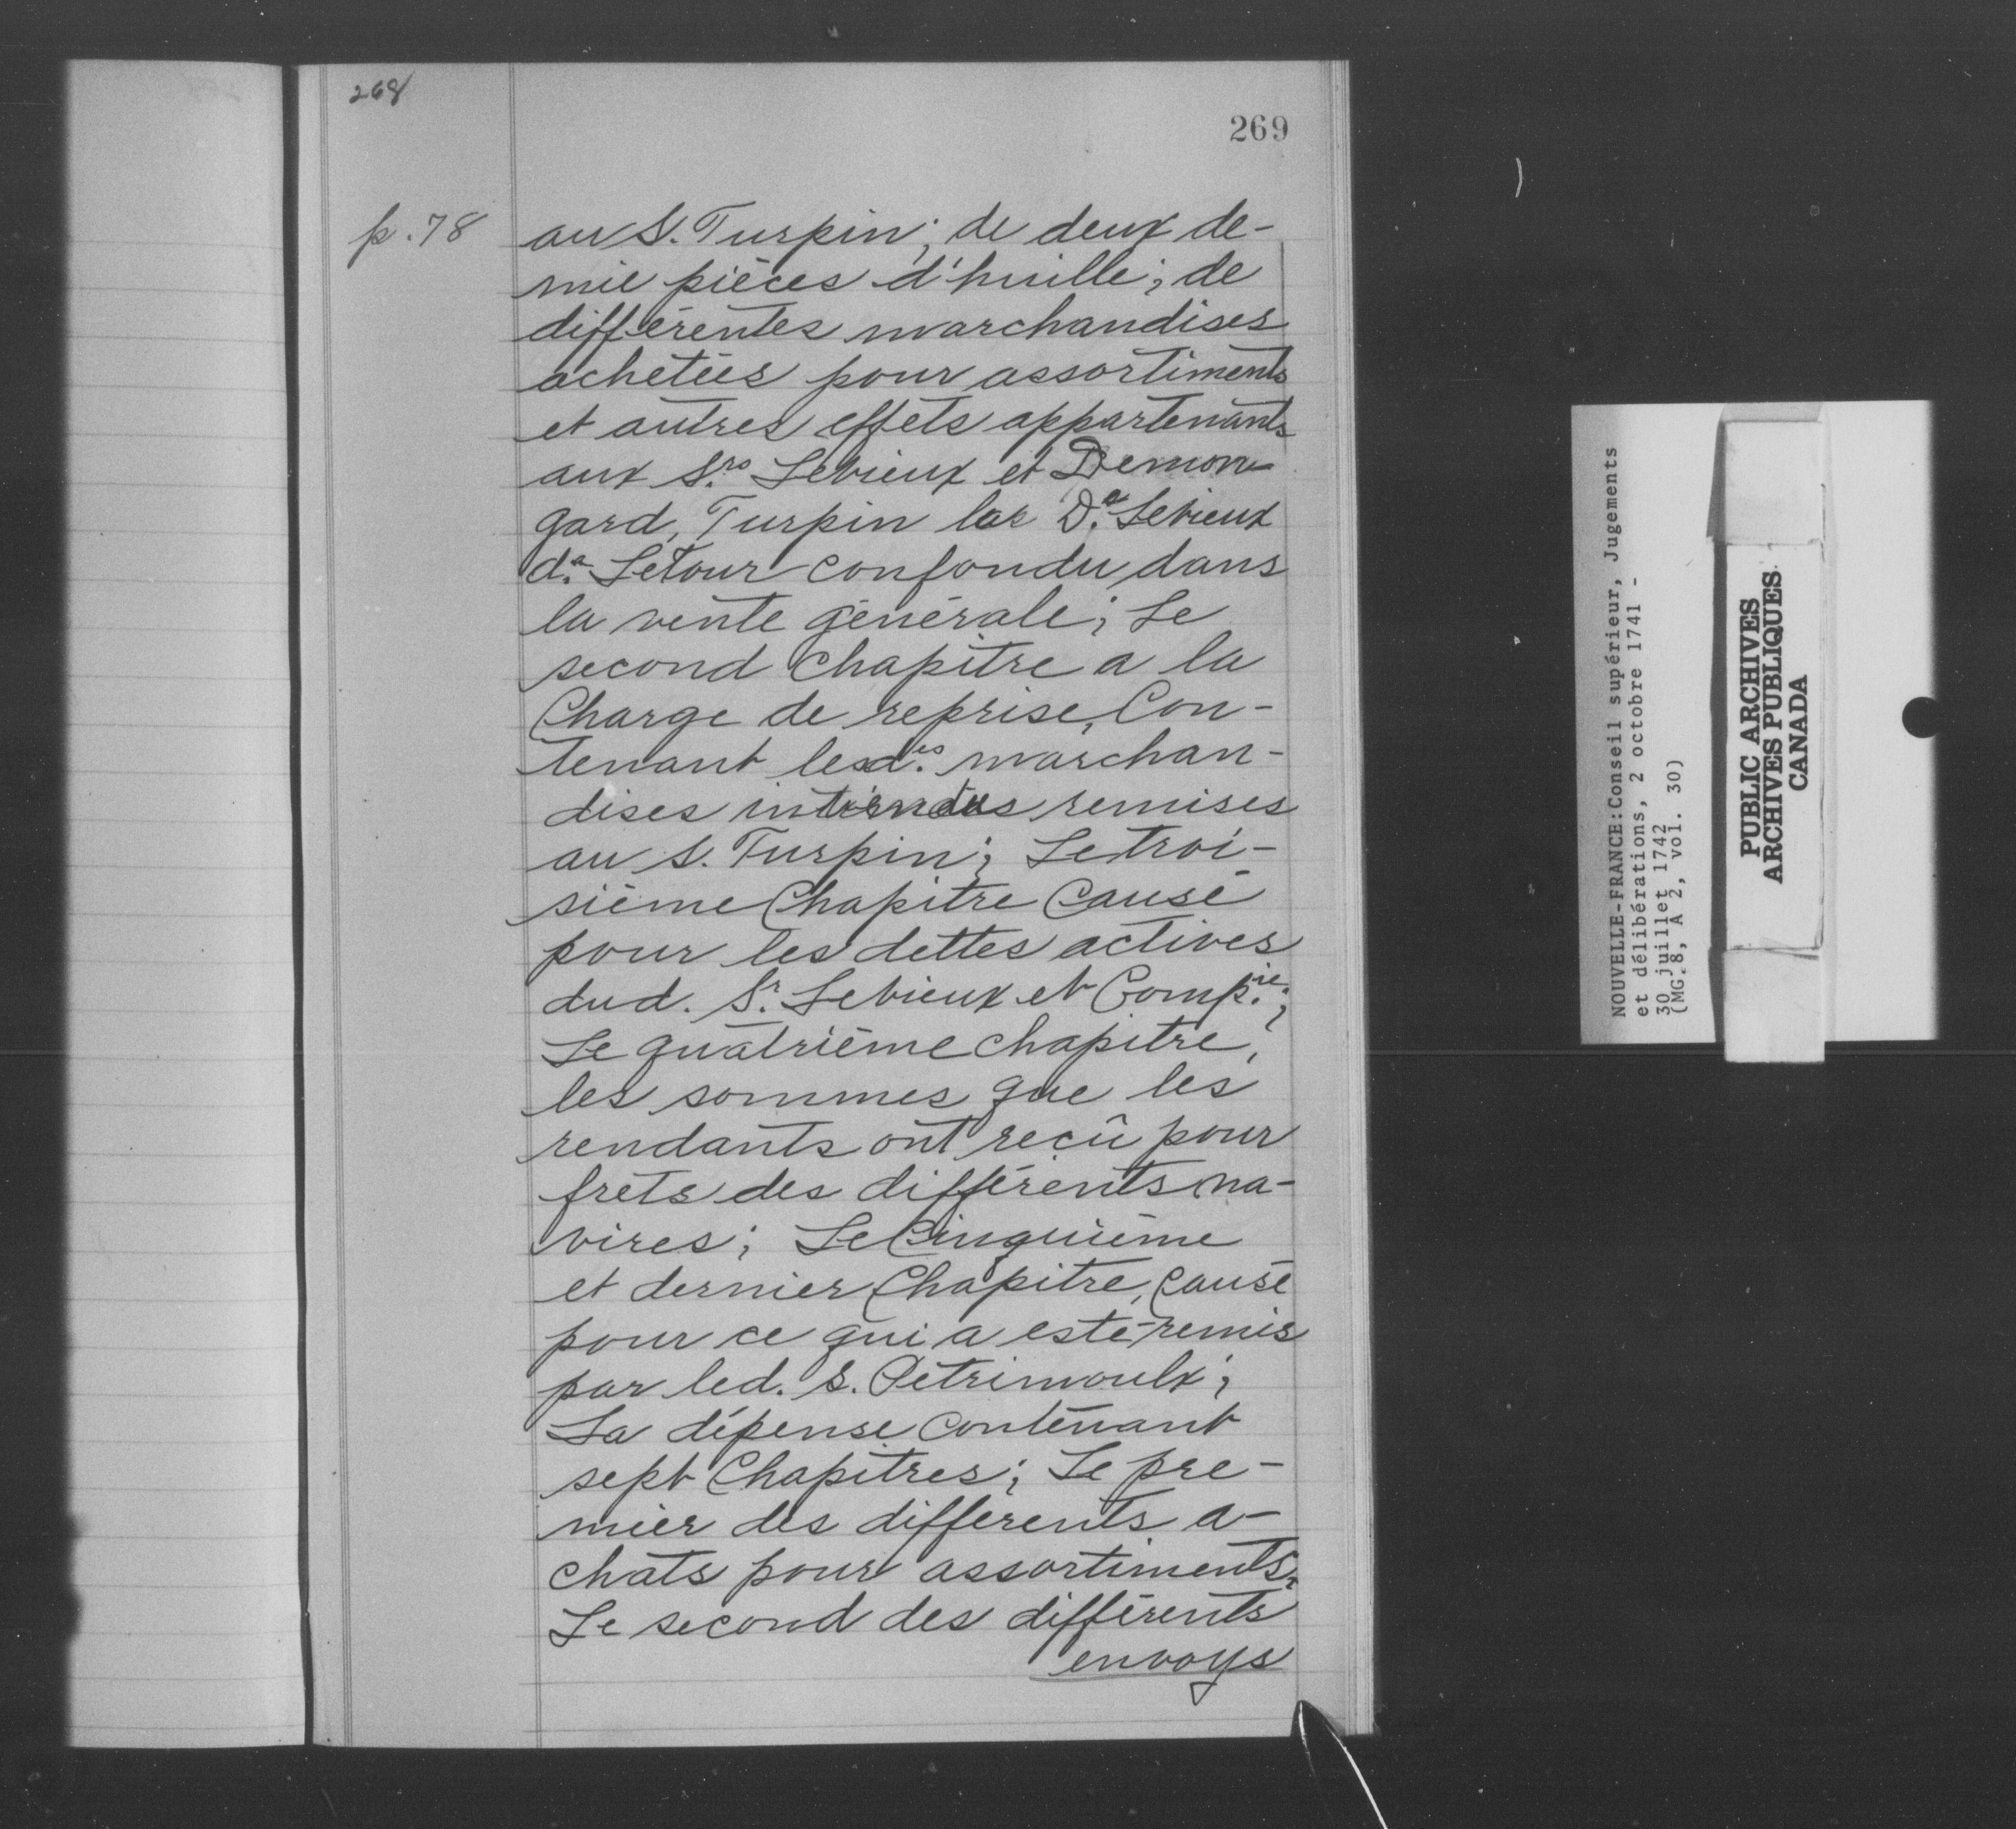 268
269
p. 78
au S. Turpin; de deux de-
mie pièces d'huille; de
différentes marchandises
achetées pour assortiments
et autres effets appartenants
aux S.rs Levieux et Demon-
gard, Turpin la D.e Levieux
d.a Letour confondu dans
la vente générale; Le
second Chapitre a la
Charge de reprise, Con-
tenant lesd.es marchan-
dises remises
au S. Turpin; Le troi-
sième Chapitre Causé
pour les dettes actives
dud. S.r Levieux et Comp.ie;
Le quatrième chapitre,
les sommes que les
rendants ont reçû pour
frets des différents na-
vires; Le Cinquième
et dernier Chapitre, Causé
pour ce qui a esté remis
par led. S. Petrimoulx;
La dépense Contenant
sept Chapitres; Le pre-
mier des differents a-
chats pour assortiments;
Le second des différents
envoys
NOUVELLE-FRANCE:Conseil supérieur, Jugements
et délibérations, 2 octobre 1741 -
30 juillet 1742
(MG 8, A 2, vol. 30)
PUBLIC ARCHIVES
ARCHIVES PUBLIQUES
CANADA